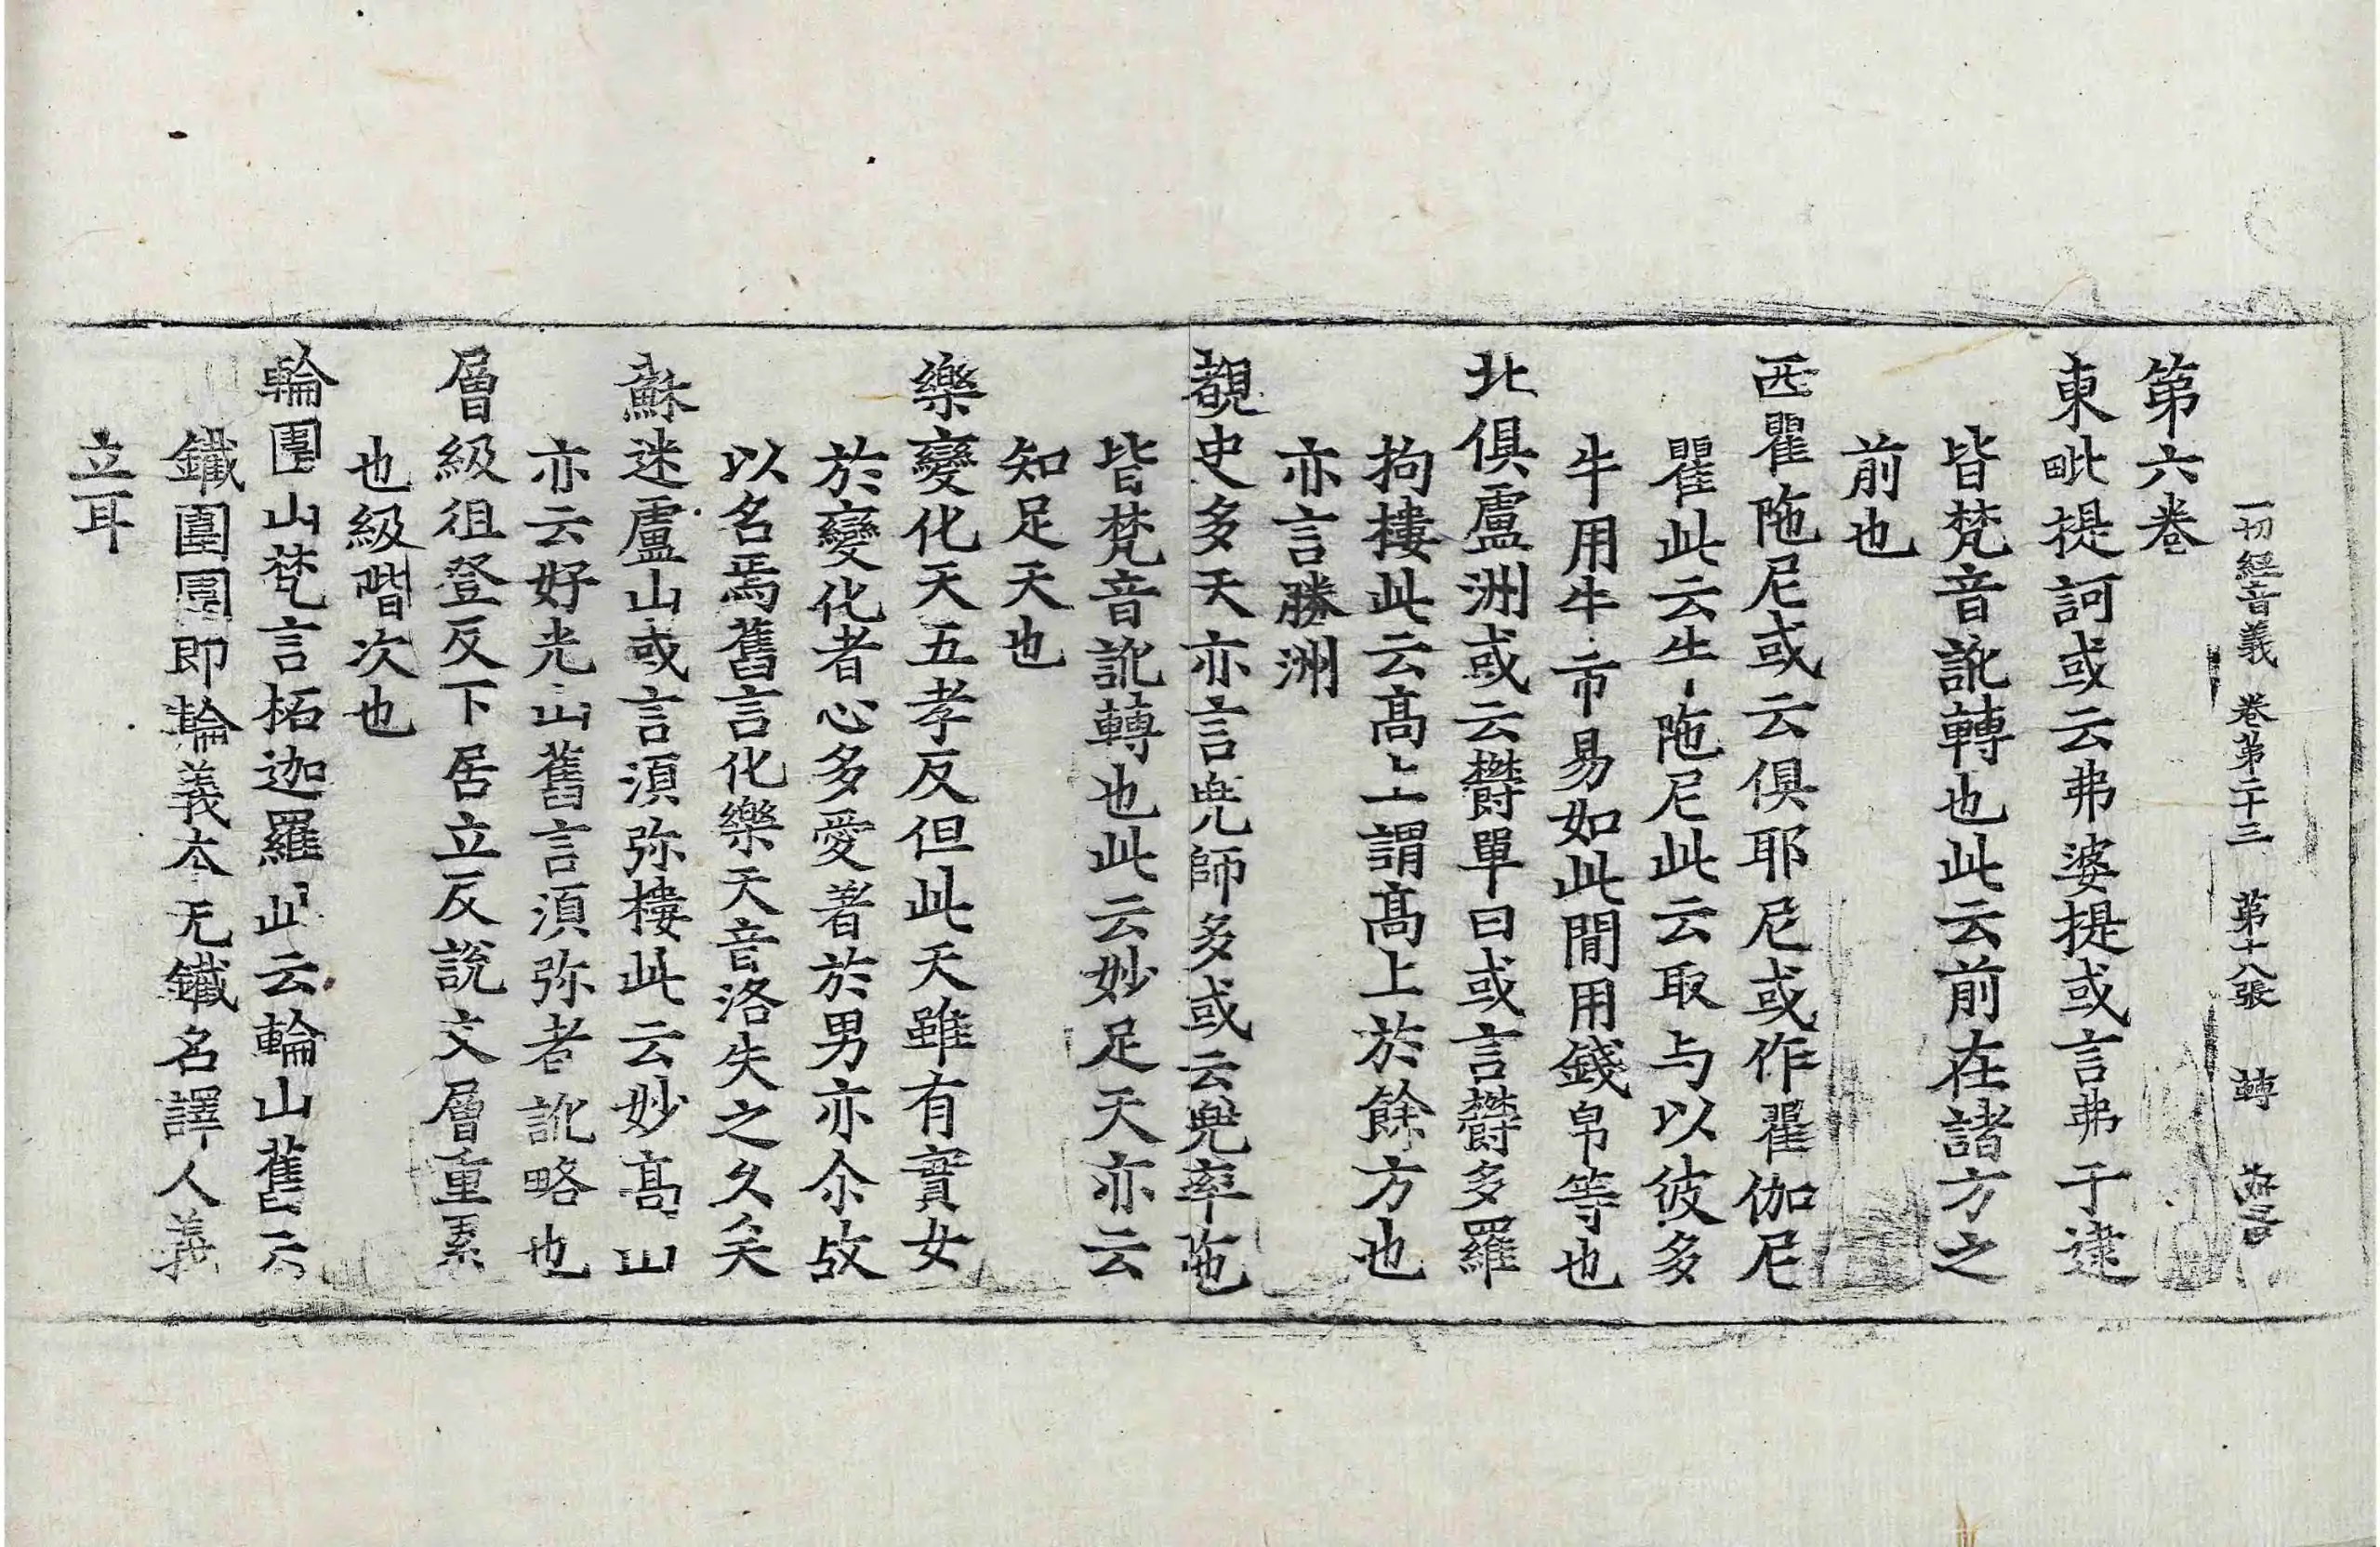 一切經音義 卷第二十三 第十八張 轉
第六卷
東毗提訶或云弗婆提或言弗于逮
皆梵音訛轉也此云前在諸方之
前也
西瞿陁尼或云俱耶尼或作瞿伽尼
瞿此云牛陁尼此云取与以彼多
牛用牛市易如此閒用錢帛等也
北俱盧洲或云欝單曰或言欝多羅
拘樓此云髙上謂髙上於餘方也
亦言勝洲
覩史多天亦言兜師多或云兜率陁
皆梵音訛轉也此云妙足天亦云
知足天也
樂變化天五孝反但此天雖有實女
於變化者心多愛著於男亦尒故
以名焉舊言化樂天音洛失之久矣
蘇迷盧山或言須弥樓此云妙髙山
亦云好光山舊言須弥者訛略也
層級徂登反下居立反說文層重累
也級階次也
輪圍山梵言柘迦羅此云輪山舊云
鐵圍圍即輪義夲无鐵名譯人義
立耳